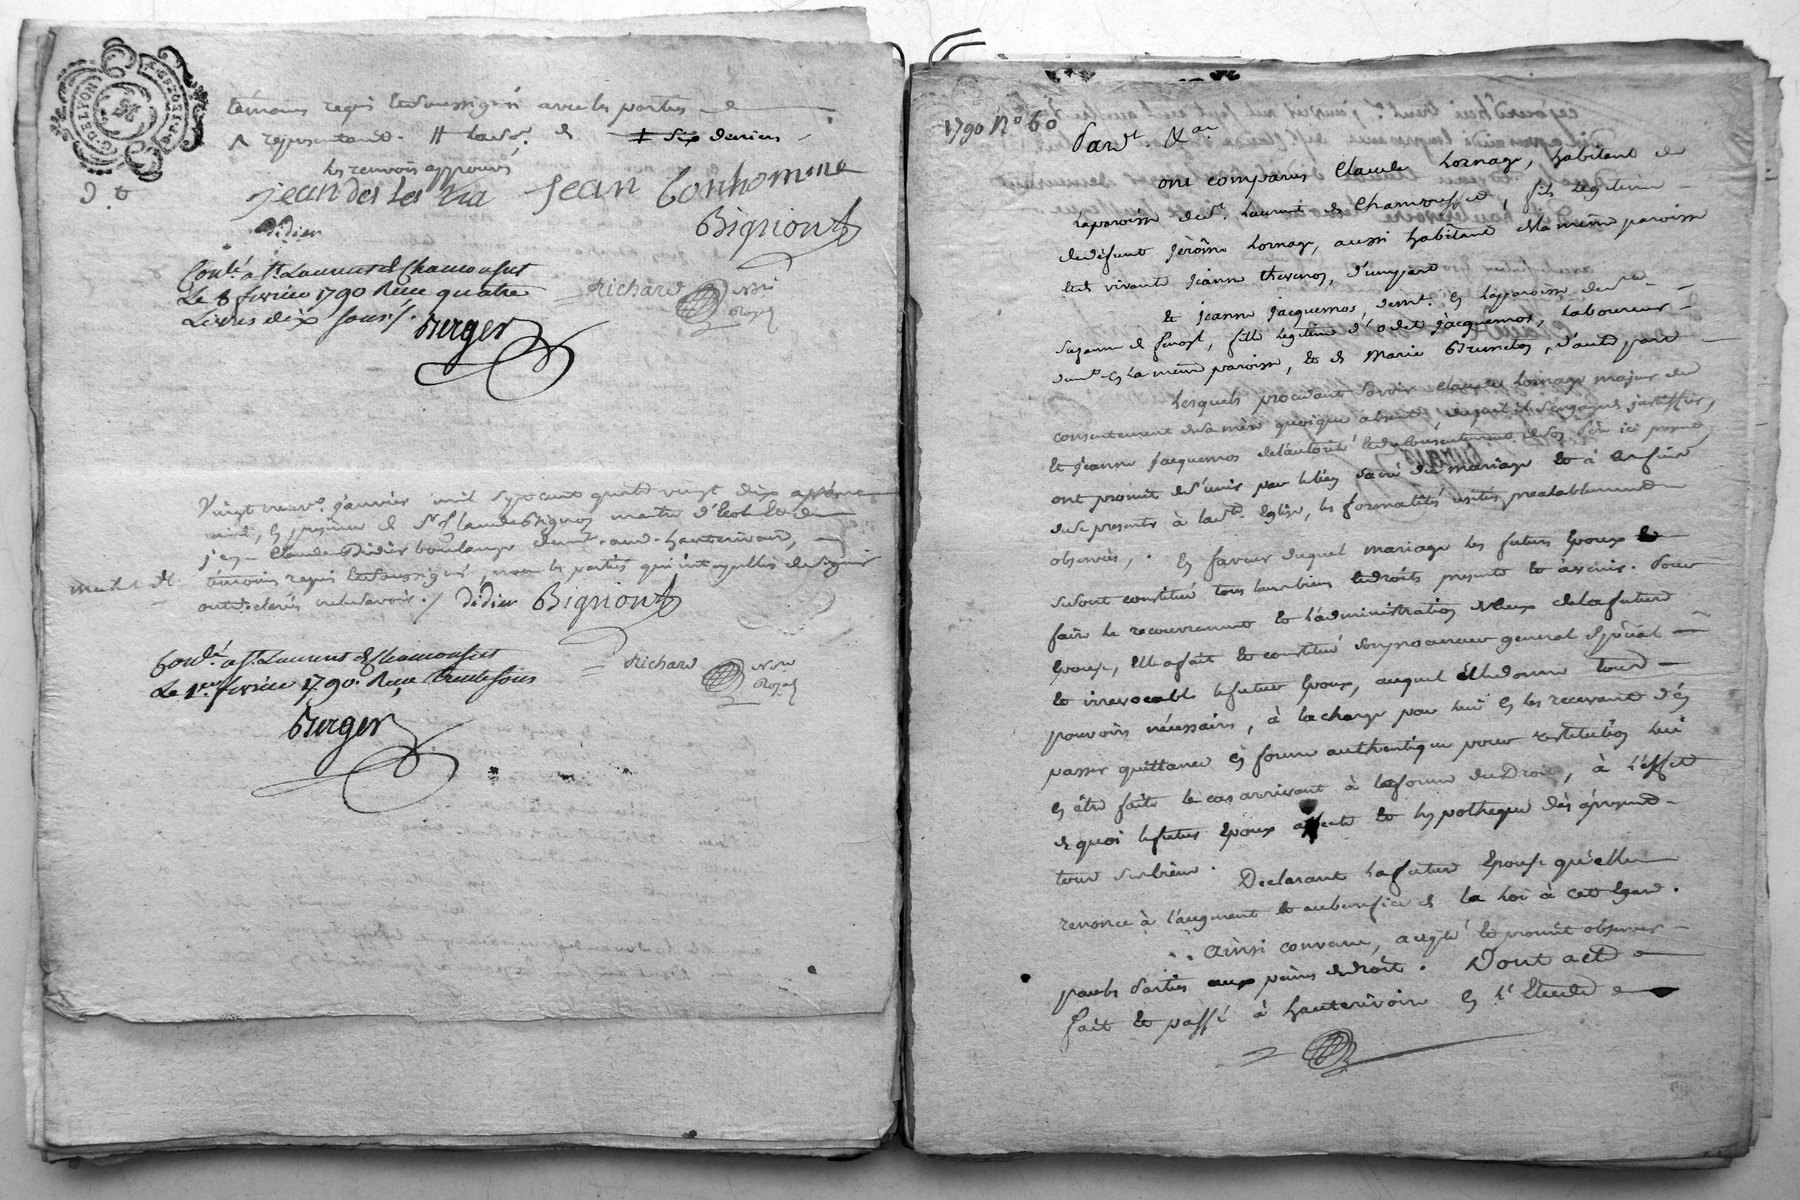 G. DE LYON
témoins requis et soussignés avec les parties
représentant. # lad. st. & ‡ six deniers
les renvois approuvés
jean des les Jean bonhomme
Bigniont
didier
Cont. a St. Laurent d Chamousset
Le 8 fevrier 1790 Reçu quatre
Livres dix sous
Berger
Richard Nre
Royal
Vingt neuf janvier mil sept cent quatre vingt dix après
midi, en presence de Sr. Claude Bigniot maitre d'école et de
Claude Didier boulanger demt. aud. hauterivoir,
témoins requis et soussignés, non les parties qui interpellées de signer
ont declaré ne le savoir. / didier Bigniont
Contr. a St. Laurent d Chamousset
Le 1er fevrier 1790. Reçu trente sous
Richard Nre
Royal
Berger
1790 No 60
Pardt. &ar
ont comparus Claude Lornage, habitant de
la paroisse de St. Laurent de Chamousset, fils legitime
de defunt jérôme Lornage, aussi habitant de la même paroisse
et de vivante jeanne thevenos, d'une part
Et jeanne jacquemos, demt. en la paroisse de ste
suzanne de , fille legitime d'odet jacquemos, laboureur
demt. en la même paroisse, et de Marie , d'autre part
Lesquels procedant savoir Claude Lornage majeur du
consentement de sa mère quoique absente duquel il s'engage justiffier,
Et jeanne jacquemos de l'autorité et du consentement de son père ici present,
ont promit de s'unir par le lien sacré du mariage et à cet fin
de se presenter à la ste. Eglise, les formalités usitées prealablement
observées, . En faveur duquel mariage les futurs Epoux se
se sont constitué tous leurs biens et droits presents et à venir. Pour
faire le recouvrement et l'administration de ceux de la future
Epouse, Elle a fait et constitué son procureur general special
et irrevocable le futur Epoux, auquel Elle donne tout
pouvoirs necessaires, à la charge par lui en les recevant d'en
passer quittance en forme authentique pour restitution lui
en être faite le cas arrivant à la forme du Droit, à l'effet
de quoi le futur Epoux affecte et hypotheque dès apresent
tout ses biens. Declarant la future Epouse qu'elle
renonce à l'augment et au benefice de la Loi à cet egard.
Ainsi convenu, accepté et promit observer
par les Parties aux peines de droit. Dont acte
fait et passé à hauterivoire en l'Etude